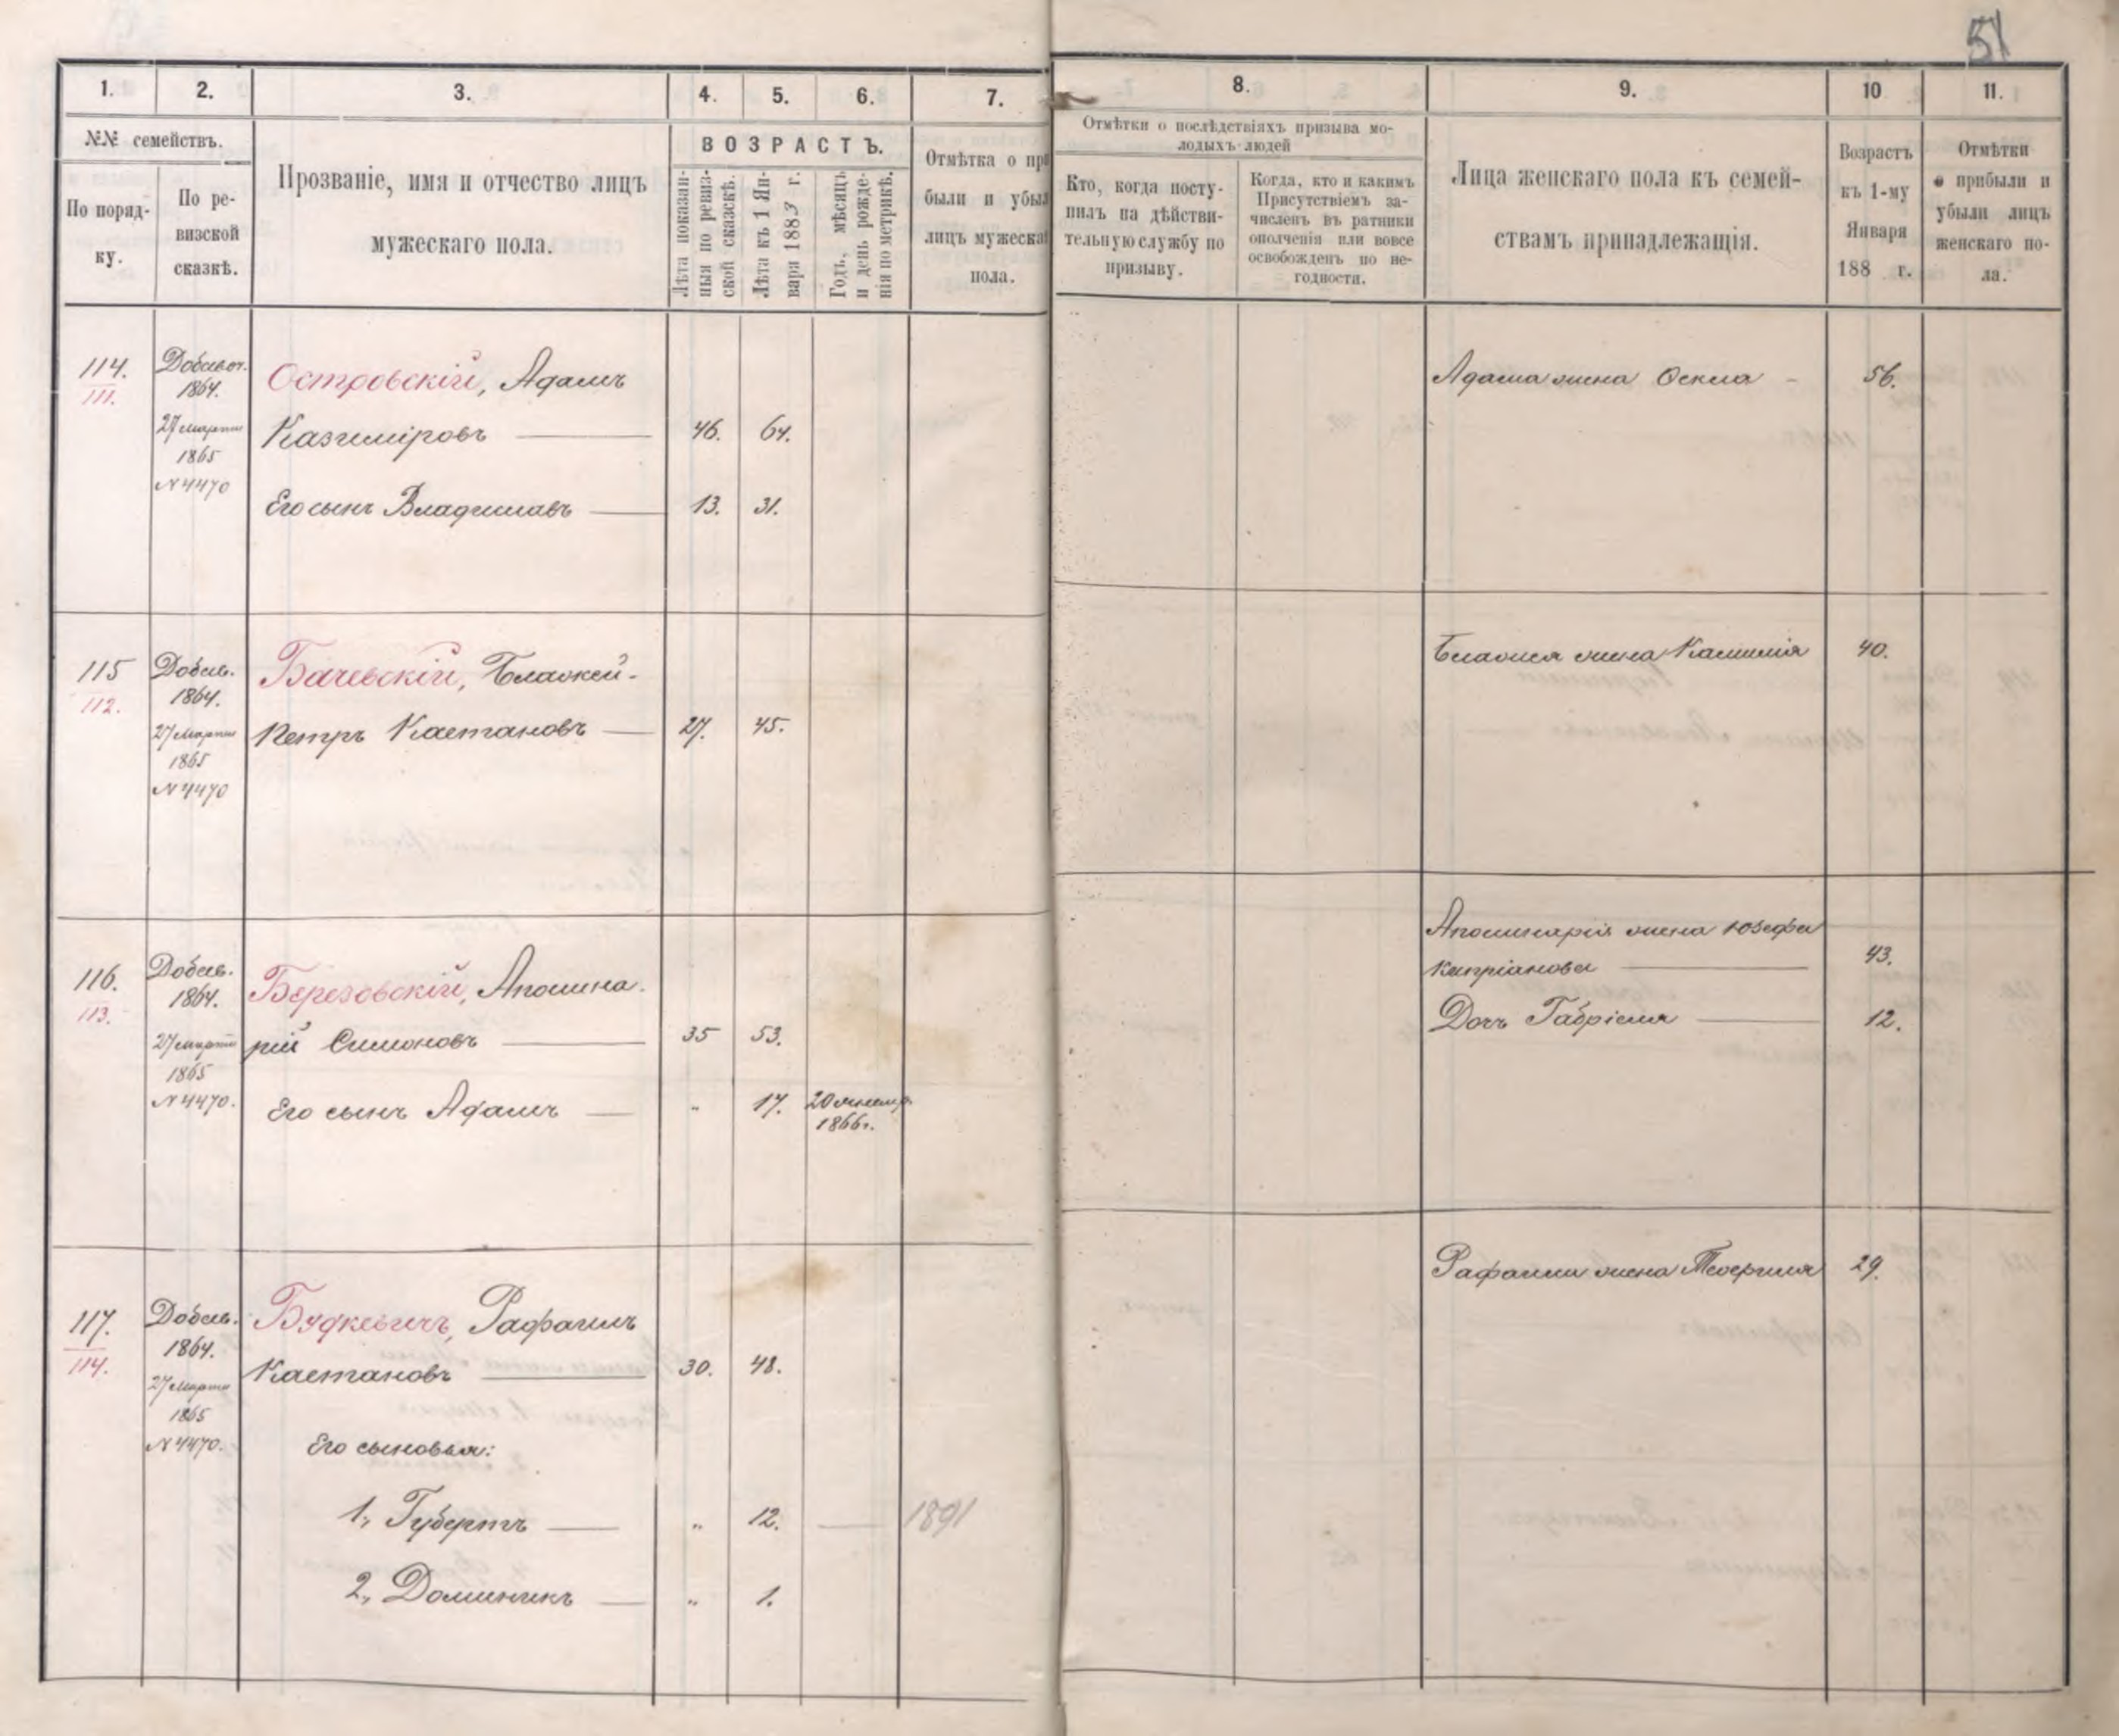 51
1.
2.
3.
4.
5.
6.
7.
8.
9.
10
11.
№№ семействъ.
По поряд-
ку.
По ре-
визской
сказкѣ.
Прозваніе, имя и отчество лицъ
мужескаго пола.
ВОЗРАСТЪ.
Лѣта показан-
ныя по ревиз-
ской сказскѣ.
Лѣта къ 1 Ян-
варя 1883 г.
Годъ, мѣсяцъ
и день рожде-
нія по метрикѣ.
Отмѣтка о при
были и убыл
лицъ мужеска
пола.
Отмѣтки о послѣдствіяхъ призыва мо-
лодыхъ людей
Кто, когда посту-
пилъ на дѣйстви-
тельную службу по
призыву.
Когда, кто и какимъ
Присутствіемъ за-
численъ въ ратники
ополченія или вовсе
освобожденъ по не-
годности.
Лица женскаго пола къ семей-
ствамъ принадлежащія.
Возрастъ
къ 1-му
Января
188 г.
Отмѣтки
о прибыли и
убыли лицъ
женскаго по-
ла.
114.
111.
Добавоч.
1864.
27 марта
1865
N 4470
Островскій, Адамъ
Казиміровъ 46. 64.
Его сынъ Владиславъ 13. 31.
Адама жена Оекла 56.
115
112.
Добав.
1864.
27 марта
1865
N 4470
Бачевскій, Блажей-
Петръ Каетановъ 27. 45.
Блажея жена Камилія 40.
116.
113.
Добав.
1864.
27 марта
1865
N 4470.
Березовскій, Аполина-
рій Симоновъ 35 53.
Его сынъ Адамъ " 17. 20
1866 г.
Аполинарія жена Юзефа
Кипріанова 43.
Дочь Габріеля 12.
117.
114.
Добав.
1864.
27 марта
1865
N 4470.
Будкевичъ, Рафаилъ
Каетановъ 30. 48.
Его сыновья:
1, Губертъ " 12. 1891
2, Доминикъ " 1.
Рафаила жена 29.